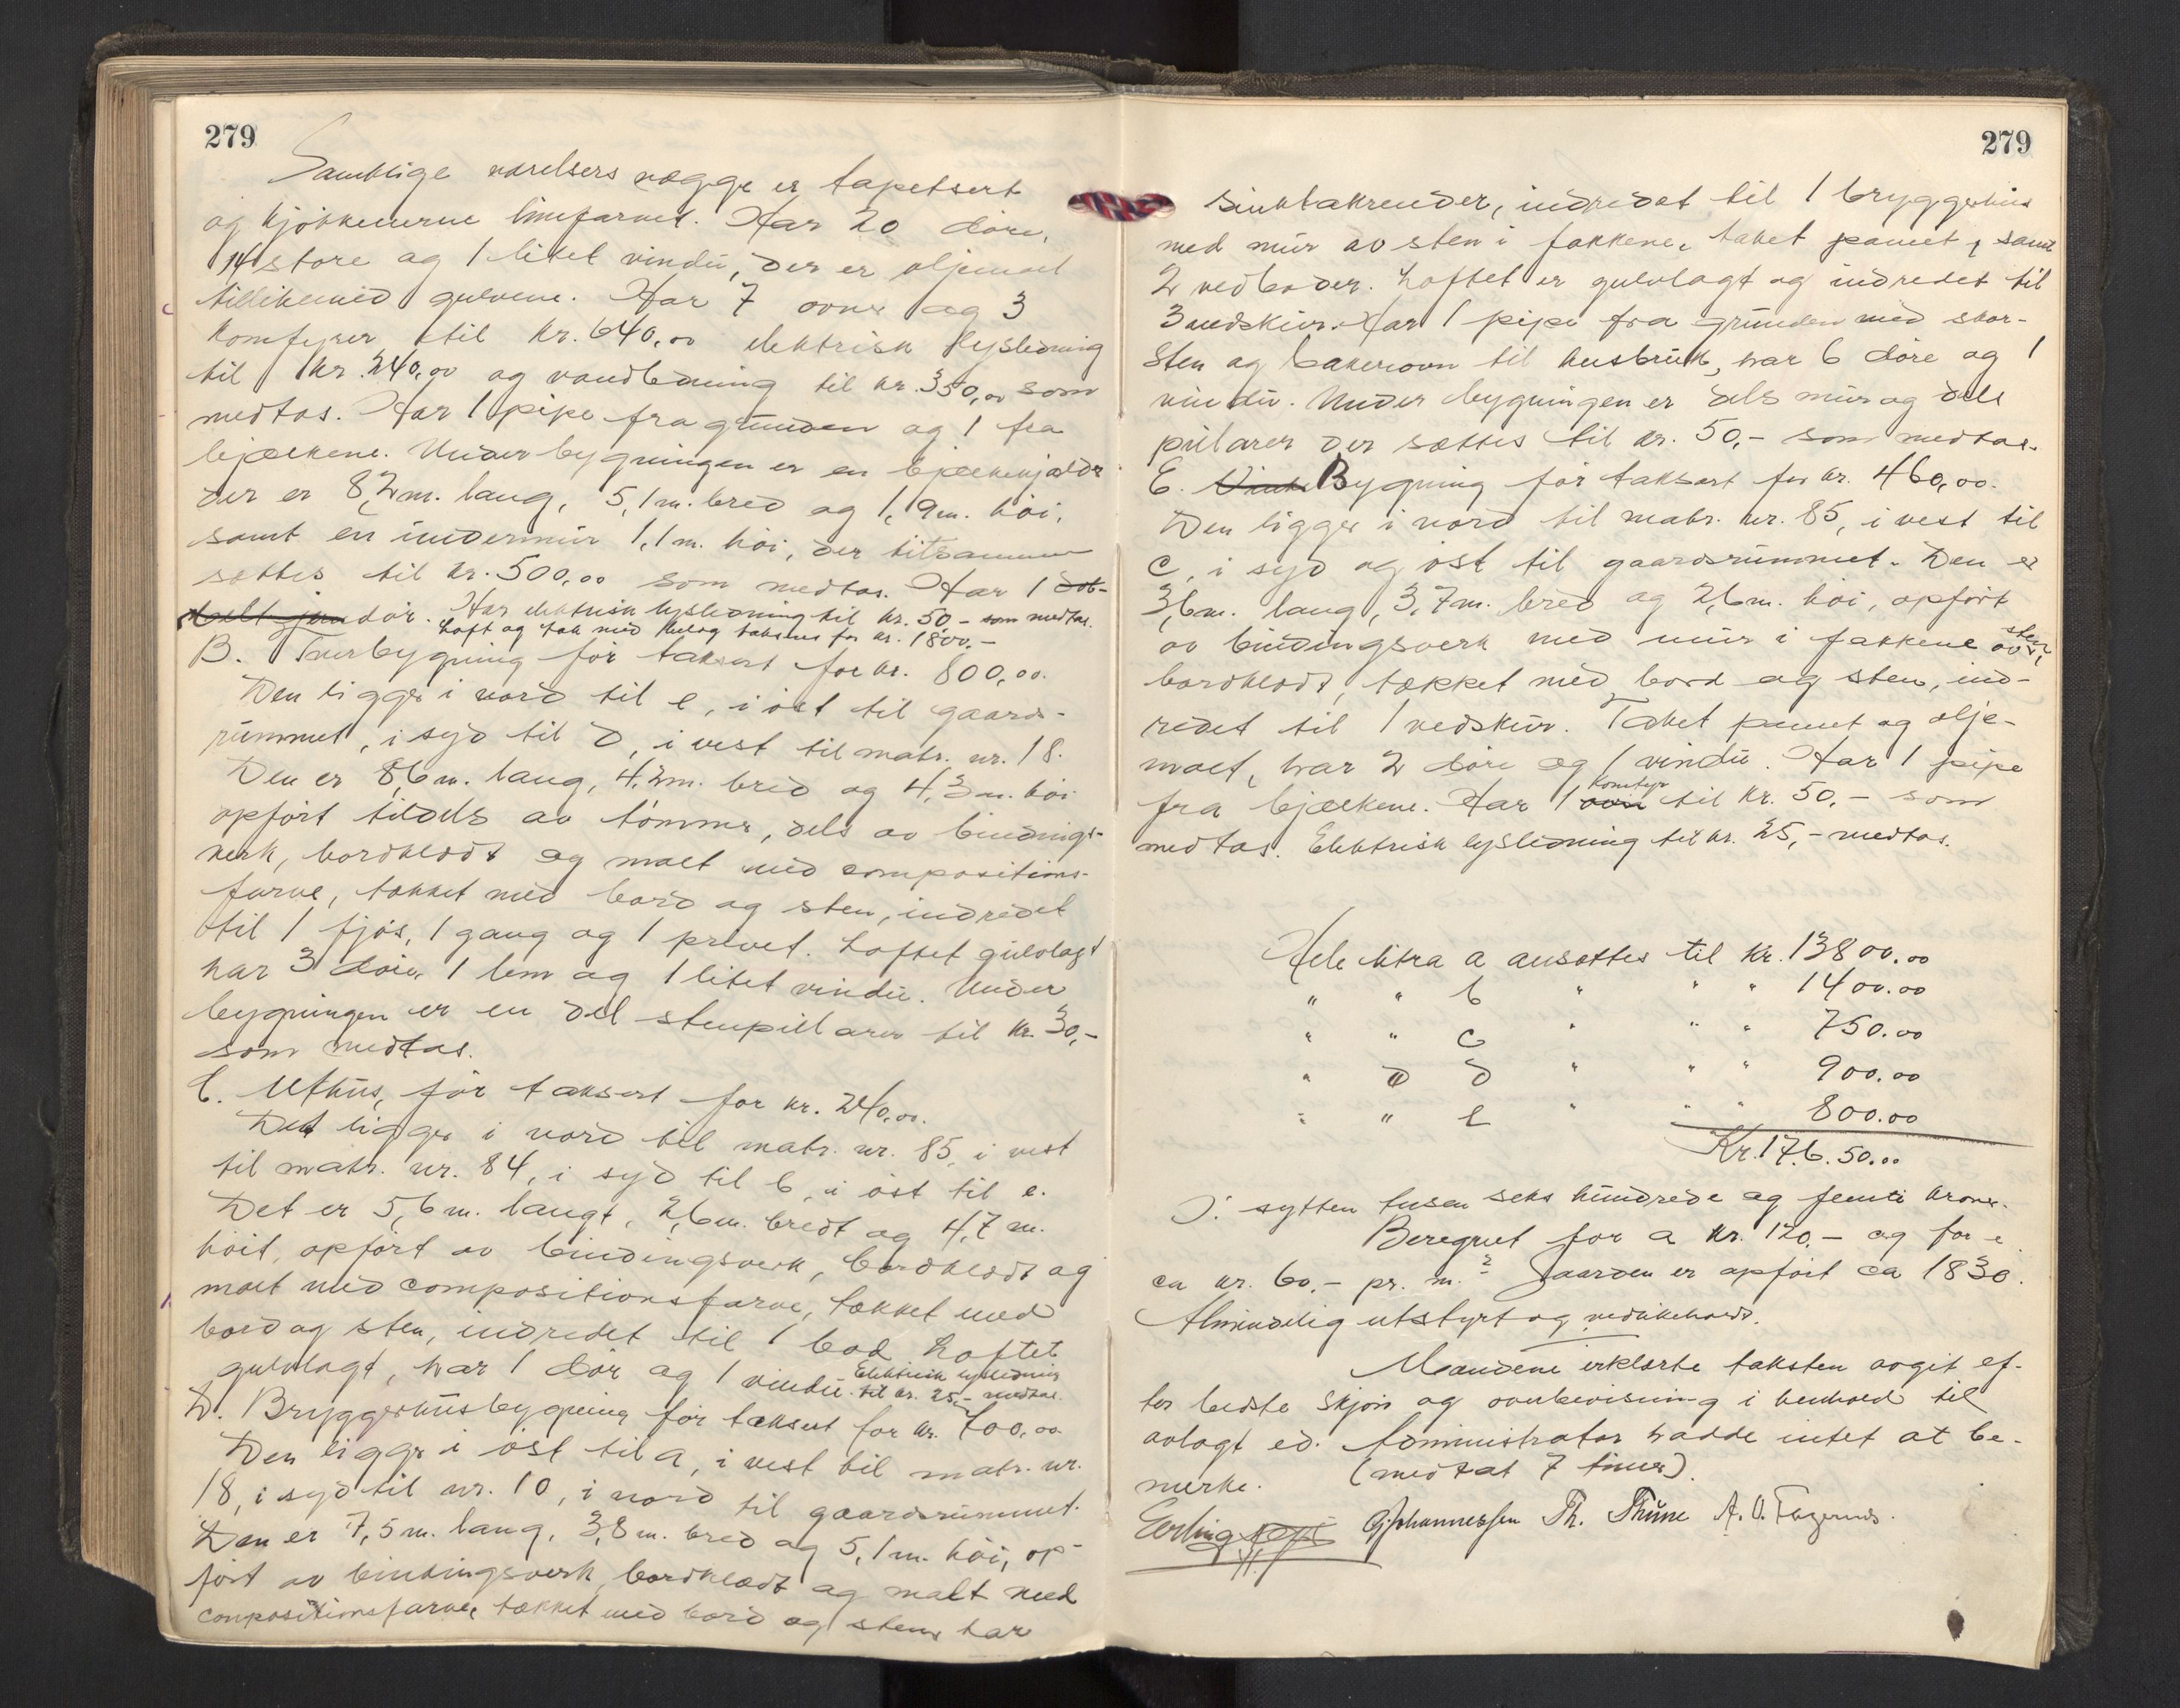 279
Samtlige værelsers vægge er tapetsert
og kjökkenerne limfarvet. Har 20 döre,
14 store og 1 litet vindu, der er oljemalt
tillikemed gulvene. Har 7 ovne og 3
komfyrer til kr. 640,00 elektrisk lysledning
til kr. 240,00 og vandledning til kr. 350,00 som
medtas. Har 1 pipe fra grunden og 1 fra
bjælkene. Under bygningen er en bjælkekjælder
der er 8,2 m. lang, 5,1 m. bred og 1,9 m. höi,
samt en indermur 1,1 m. höi, der tilsammen
sættes til kr. 500,00 som medtas. Har 1 dob-
belt jern dör. Har elektrisk lysledning til kr. 50,- som medtas.
Loft og tak med kvelag takseres for kr. 1800.-
B. Tverbygning för taksert for kr. 800,00.
Den ligger i nord til c, i öst til gaards-
rummet, i syd til d, i vest til matr. nr. 18.
Den er 8,6 m. lang, 4,2 m. bred og 4,3 m. höi
opfört tildels av tömmer, dels av bindings-
verk, bordklædt og malt med compositions-
farve, tækket med bord og sten, indredet
til 1 fjös, 1 gang og 1 privet. Loftet gulvlagt
har 3 döre, 1 lem og 1 litet vindu. Under
bygningen er en del stenpillarer til kr. 30,-
som medtas.
C. Uthus, för taksert for kr. 240,00.
Det ligger i nord til matr. nr. 85, i vest
til matr. nr. 84, i syd til b, i öst til e.
Det er 5,6 m. langt, 2,6 m. bredt og 4,7 m.
höit, opfört av bindingsverk, bordklædt og
malt med compositionsfarve, tækket med
bord og sten, indredet til 1 bod. Loftet
gulvlagt, har 1 dör og 1 vindu. Elektrisk lysledning
til kr. 25,- medtas.
D. Bryggerhusbygning för taksert for kr. 700,00
Den ligger i öst til a, i vest til matr. nr.
18, i syd til nr. 10, i nord til gaardsrummet.
Den er 7,5 m. lang, 3,8 m. bred og 5,1 m. höi, op-
fört av bindingsverk, bordklædt og malt med
compositionsfarve, tækket med bord og sten, har
279
sinktakrender, indredet til 1 bryggerhus
med mur av sten i fakkene, taket panelt, samt
2 vedboder. Loftet er gulvlagt og indredet til
3 vedskur. Har 1 pipe fra grunden med skor-
sten og bakerovn til husbruk, har 6 döre og 1
vindu. Under bygningen er dels mur og dels
pillarer der sættes til kr. 50,- som medtas.
E. Bygning för taksert for kr. 460,00.
Den ligger i nord til matr. nr. 85, i vest til
c, i syd og öst til gaardsrummet. Den er
3,6 m. lang, 3,7 m. bred og 2,6 m. höi, opfört
av bindingsverk med mur i fakkene av sten,
bordklædt, tækket med bord og sten, ind-
redet til 1 vedskur. Taket panelt og olje-
malt, har 2 döre og 1 vindu. Har 1 pipe
fra bjælkene. Har 1 ovn komfyr til kr. 50,- som
medtas. Elektrisk lysledning til kr. 25,- medtas.
Hele litra a ansættes til kr. 13800.00
" " b " " " 1400.00
" " c " " " 750.00
" " d " " " 900.00
" " e " " " 800.00
Kr. 176.50.00
J: sytten tusen seks hundrede og femti kroner.
Beregnet for a kr. 120,- og for e
ca kr. 60,- pr. m.² Gaarden er opfört ca 1830.
Almindelig utstyrt og vedlikeholdt.
Mændene erklærte taksten avgit ef-
ter bedste skjön og overbevisning i henhold til
avlagt ed. Administrator hadde intet at be-
merke. (medtat 7 timer).
Erling Johannessen Th. Thune A. O. Fagernes.